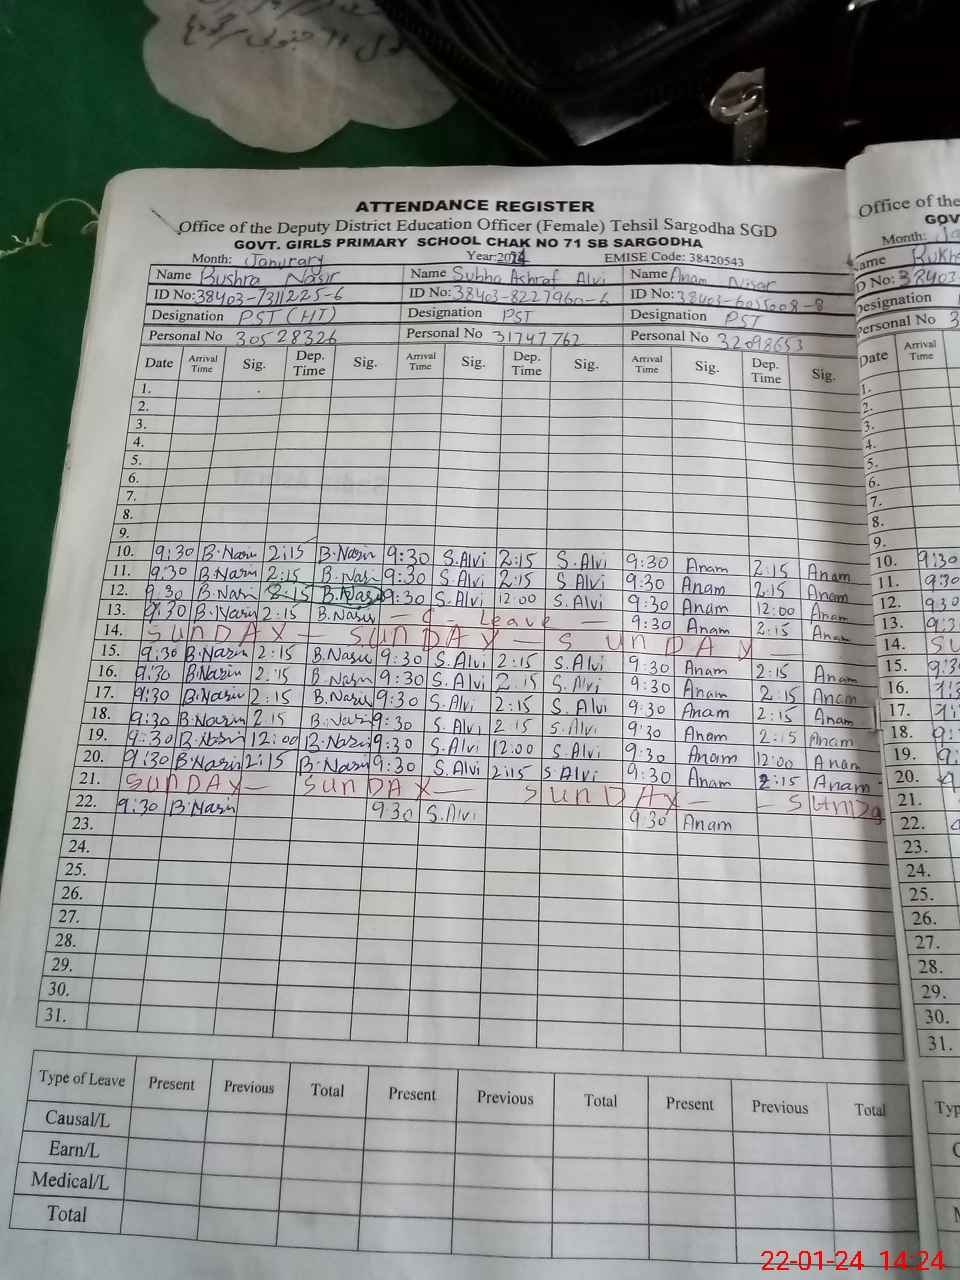 ATTENDANCE REGISTER
Office of the Deputy District Education Officer (Female) Tehsil Sargodha SGD
GOVT. GIRLS PRIMARY SCHOOL CHAK NO 71 SB SARGODHA
Month: Janurary Year:2024 EMISE Code: 38420543
Name Bushra Nasir Name Subha Ashraf Alvi Name Anam Nisar
ID No:38403-7311225-6 ID No:38403-8227960-6 ID No:38403-6035008-8
Designation PST (HT) Designation PST Designation PST
Personal No 30528326 Personal No 31747762 Personal No 32098653
Date Arrival Time Sig. Dep. Time Sig. Arrival Time Sig. Dep. Time Sig. Arrival Time Sig. Dep. Time Sig.
1.
2.
3.
4.
5.
6.
7.
8.
9.
10. 9:30 B.Nasir 2:15 B.Nasir 9:30 S.Alvi 2:15 S.Alvi 9:30 Anam 2:15 Anam
11. 9:30 B.Nasir 2:15 B.Nasir 9:30 S.Alvi 2:15 S.Alvi 9:30 Anam 2:15 Anam
12. 9:30 B.Nasir B.Nasir 9:30 S.Alvi 12:00 S.Alvi 9:30 Anam 12:00 Anam
13. 9:30 B.Nasir 2:15 B.Nasir — C - Leave — 9:30 Anam 2:15 Anam
14. SUNDAY — SUNDAY — SUNDAY —
15. 9:30 B.Nasir 2:15 B.Nasir 9:30 S.Alvi 2:15 S.Alvi 9:30 Anam 2:15 Anam
16. 9:30 B.Nasir 2:15 B.Nasir 9:30 S.Alvi 2:15 S.Alvi 9:30 Anam 2:15 Anam
17. 9:30 B.Nasir 2:15 B.Nasir 9:30 S.Alvi 2:15 S.Alvi 9:30 Anam 2:15 Anam
18. 9:30 B.Nasir 2:15 B.Nasir 9:30 S.Alvi 2:15 S.Alvi 9:30 Anam 2:15 Anam
19. 9:30 B.Nasir 12:00 B.Nasir 9:30 S.Alvi 12:00 S.Alvi 9:30 Anam 12:00 Anam
20. 9:30 B.Nasir 2:15 B.Nasir 9:30 S.Alvi 2:15 S.Alvi 9:30 Anam 2:15 Anam
21. SUNDAY — SUNDAY — SUNDAY — — SUNDa
22. 9:30 B.Nasir 9:30 S.Alvi 9:30 Anam
23.
24.
25.
26.
27.
28.
29.
30.
31.
Type of Leave Present Previous Total Present Previous Total Present Previous Total
Causal/L
Earn/L
Medical/L
Total
Office of the
GOV
Month: Ja
Name Rukh
Designation
Personal No 3
Date Arrival Time
1.
2.
3.
4.
5.
6.
7.
8.
9.
10. 9:30
11. 9:30
12. 9:30
13.
14. SU
15.
16.
17.
18.
19.
20.
21.
22.
23.
24.
25.
26.
27.
28.
29.
30.
31.
22-01-24 14:24